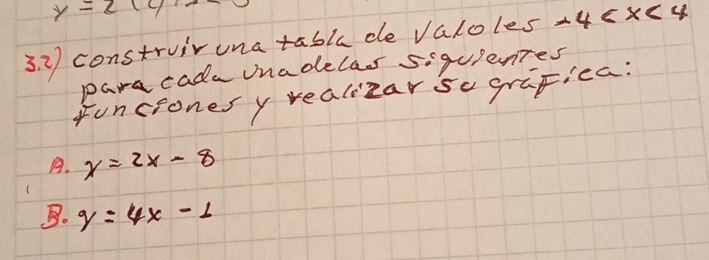 y = 2
3.2) construir una tabla de Valoles -4 < x < 4
para cada una de las siguientes
funciones y realizar su gráfica:
A. y = 2x - 8
B. y = 4x - 1